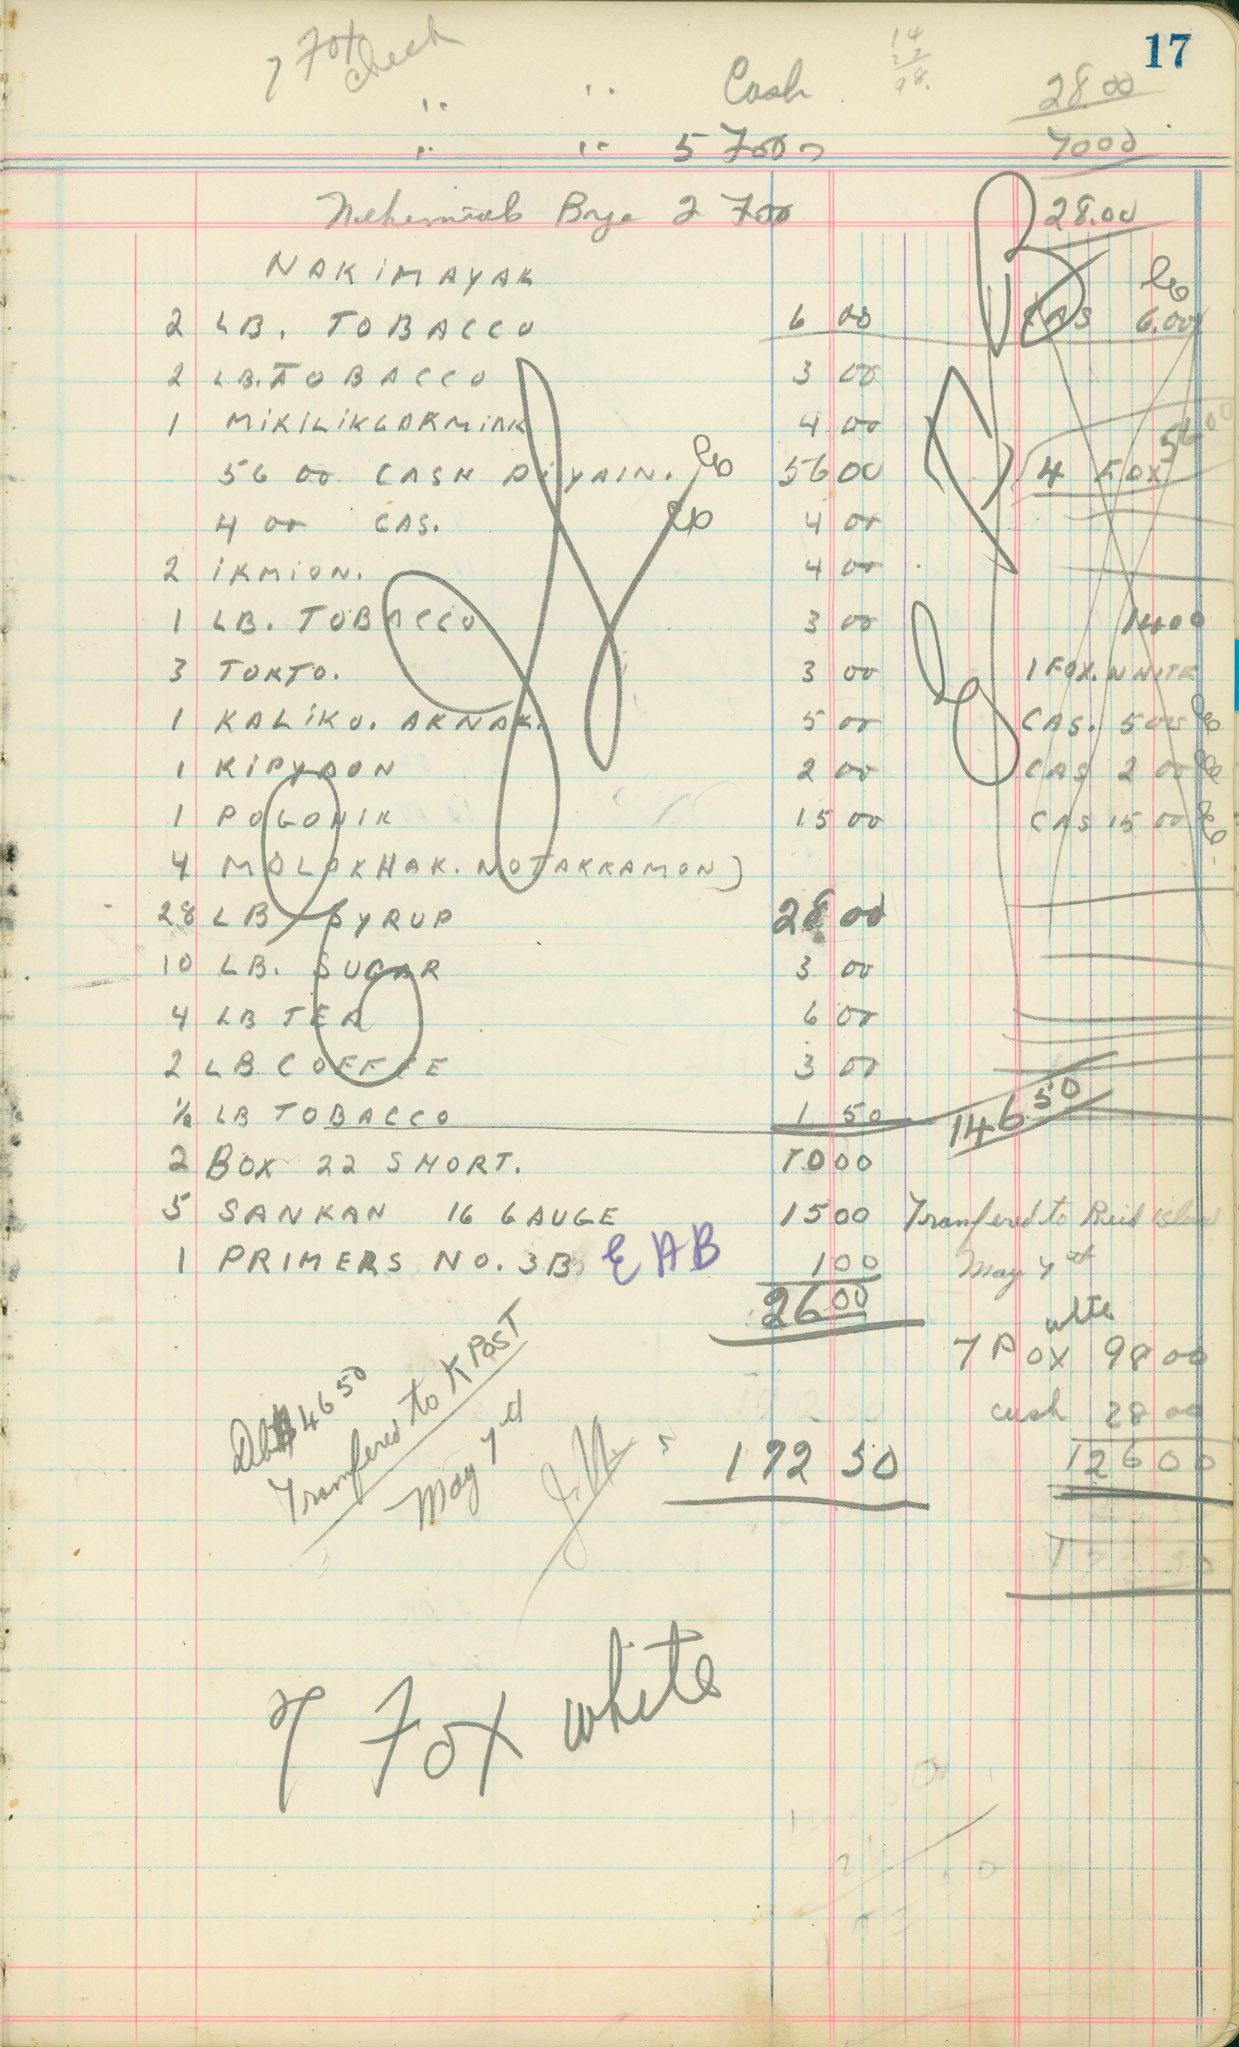 17
7 Fox check
14
98.
" " Cash 28 00
" " 5 Fox 70 00
2 Fox 28.00
NAKIMAYAK
2 LB. TOBACCO 6 00 CAS 6.00
2 LB. TOBACCO 3 00
1 MIKILIKGARMINK 4 00 56 00
56 00 CASH 56 00 4 FOX
4 00 CAS. 4 00
2 IKMION. 4 00
1 LB. TOBACCO 3 00 14 00
3 TORTO. 3 00 1 FOX. WHITE
1 KALIKO. ARNAK. 5 00 CAS. 5 00
1 KIPYAON 2 00 CAS 2 00
1 POGONIK 15 00 CAS 15 00
4 MOLOKHAK. NOTAKKAMON)
28 LB SYRUP 28 00
10 LB. SUGAR 3 00
4 LB TEA 6 00
2 LB COFFEE 3 00
½ LB TOBACCO 1 50 146 50
2 BOX 22 SHORT. 10 00
5 SANKAN 16 GAUGE 15 00 Transfered to Reid Island
1 PRIMERS NO. 3B EAB 1 00 May 7th
26 00
7 Fox white 98 00
cash 28 00
172 50 126 00
146 50
Transfered to K Post
May 7th
7 Fox white